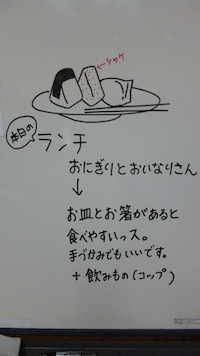 ←シャケ
本日の
ランチ
おにぎりとおいなりさん
↓
お皿とお箸があると
食べやすいっス。
手づかみでもいいです。
+飲みもの(コップ)